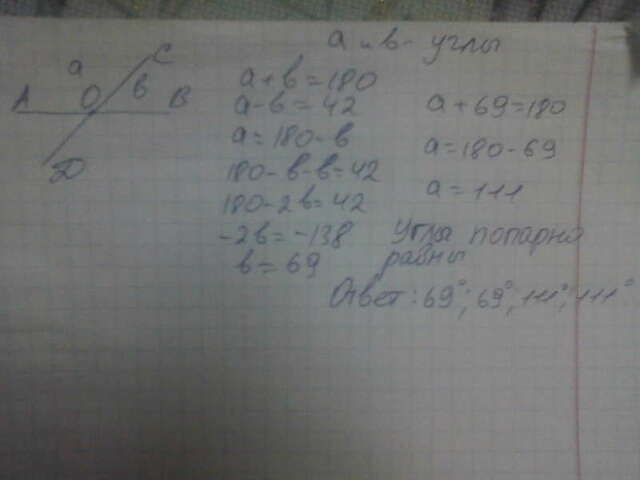 a и в - углы
C
a
O
в
A
B
D
a + в = 180
a - в = 42
a = 180 - в
180 - в - в = 42
180 - 2в = 42
-2в = -138
в = 69
a + 69 = 180
a = 180 - 69
a = 111
Углы попарно
равны
Ответ: 69°; 69°, 111°, 111°